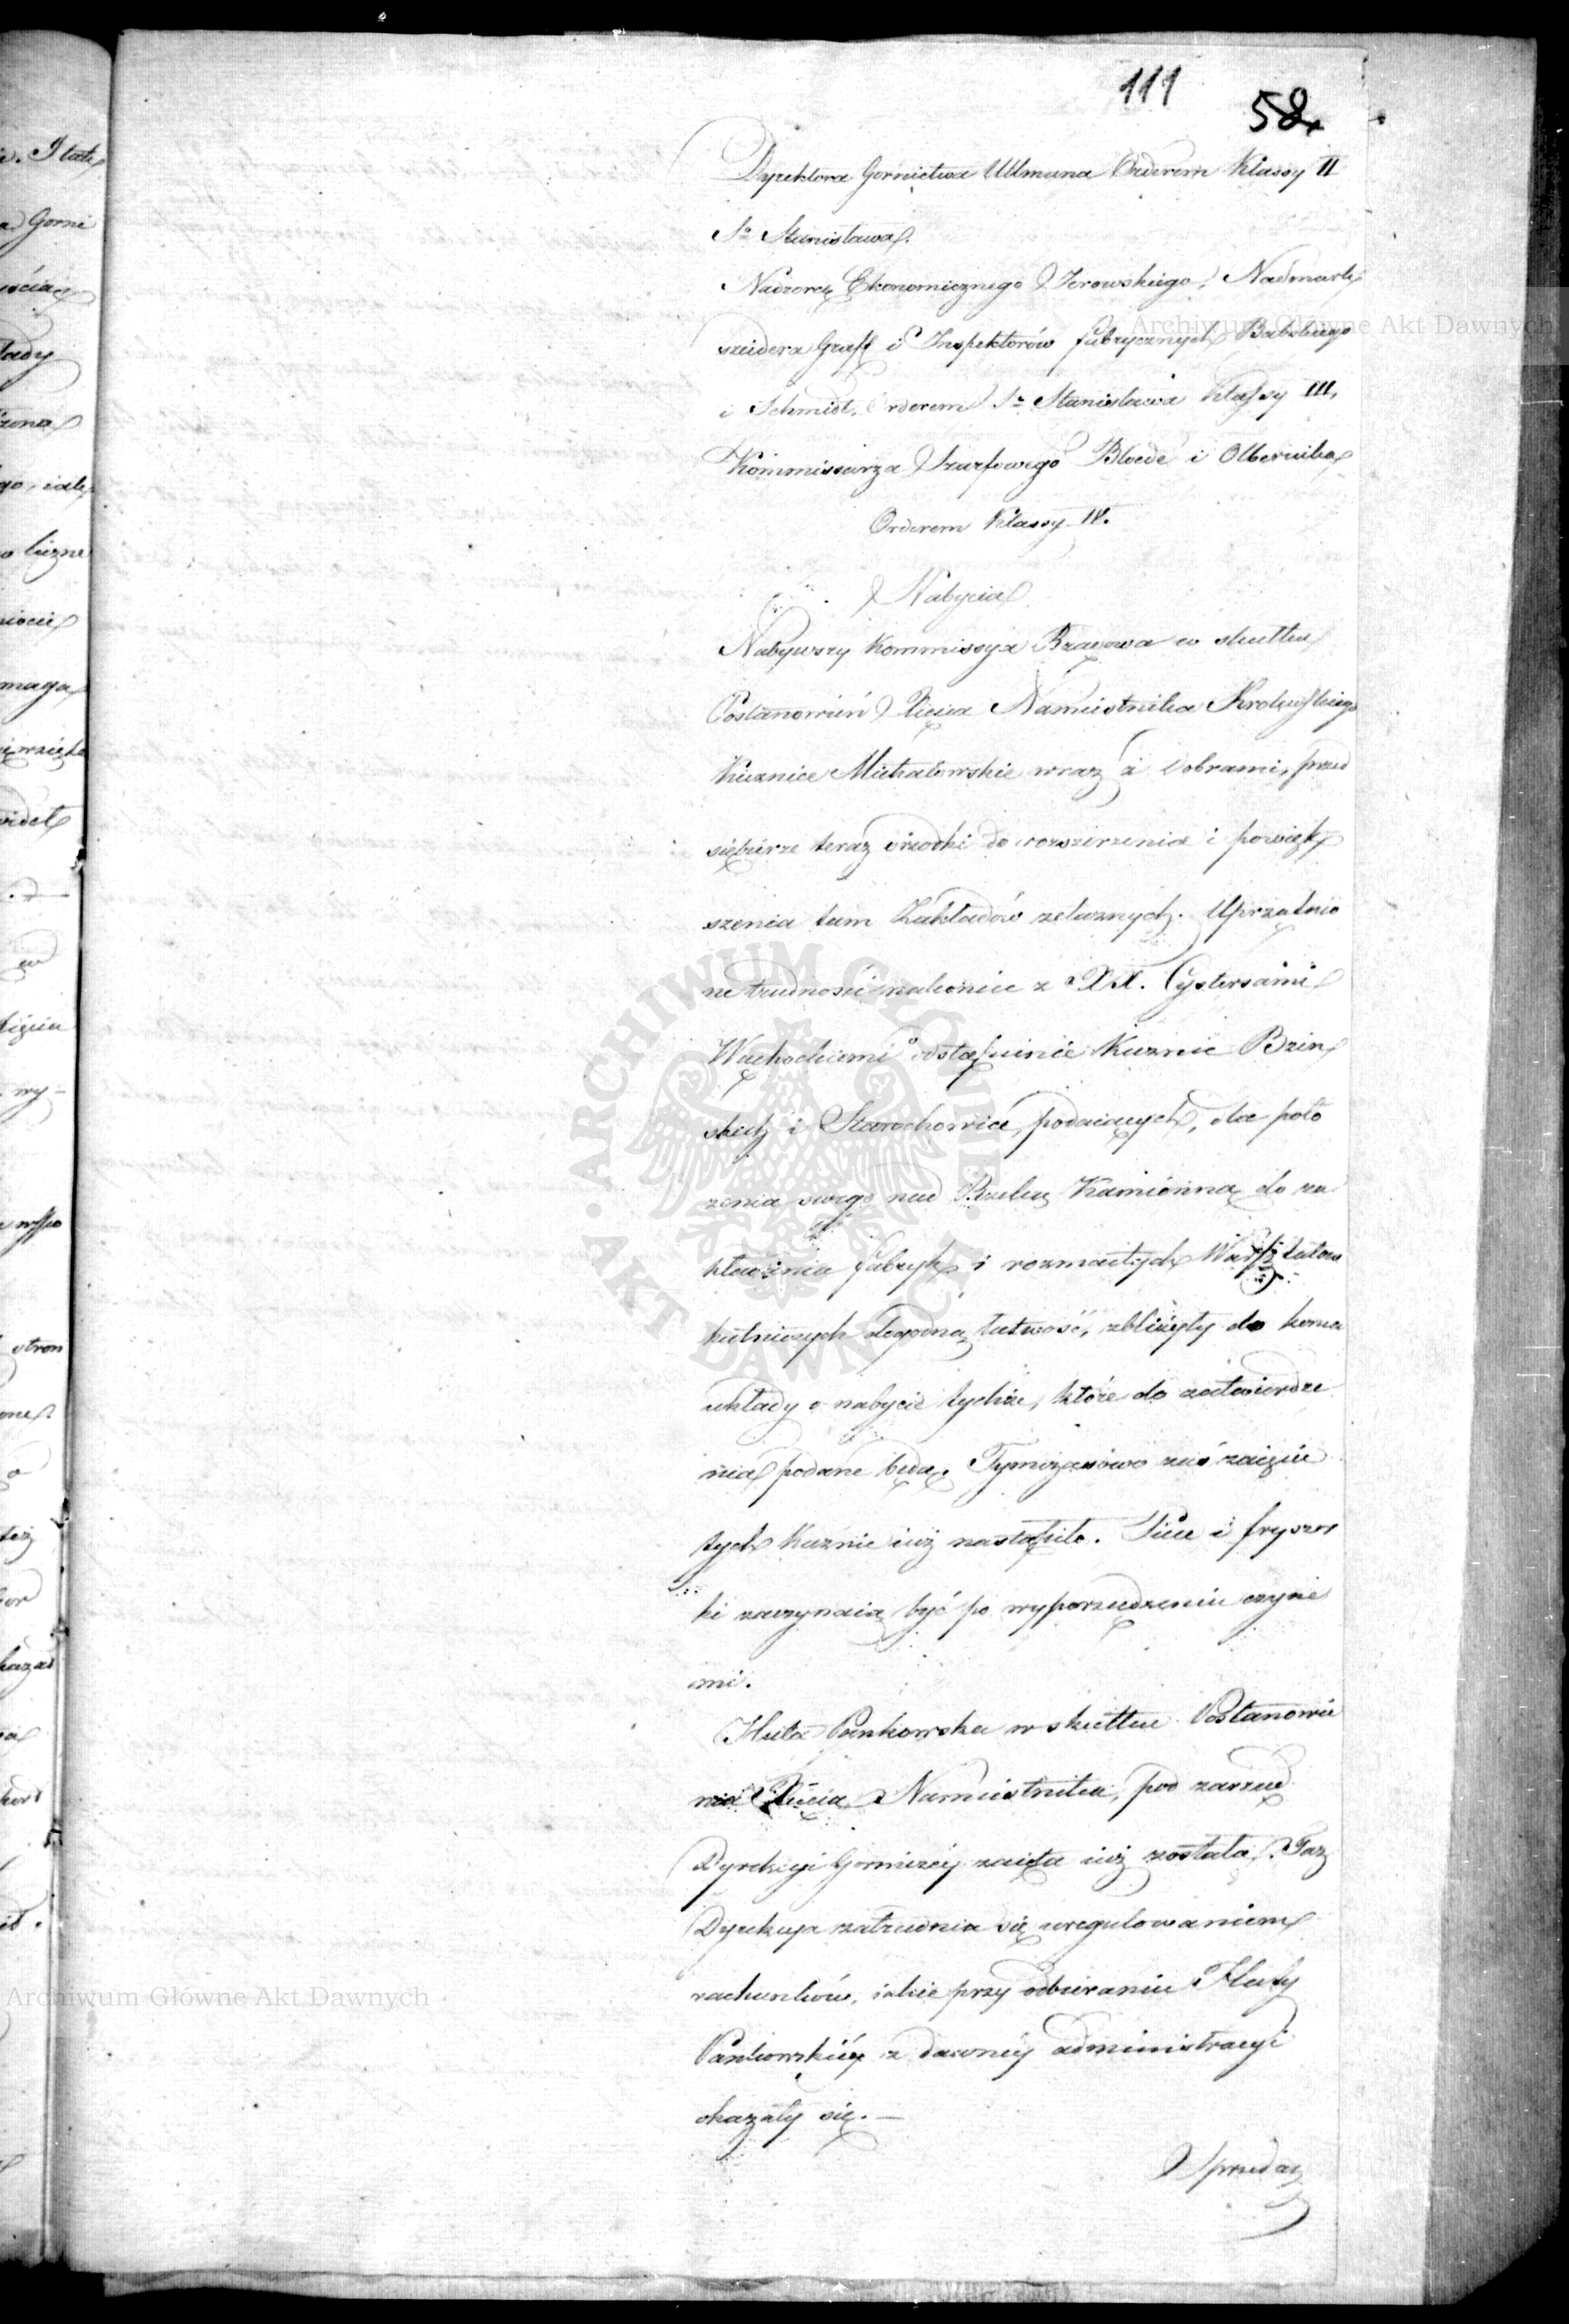 111
58
Dyrektora Gornictwa Ullmana Orderem Klassy II
Sº Stanisława.
Nadzorcę Ekonomicznego Jerowskiego, Nadmark
szeidera Graff i Inspektorów fabrycznych Babskiego
i Schmidt, Orderem Sº Stanisława Klassy III,
Kommissarza Szurfowego Bloede i Olbernika
Orderem Klassy IV.
Nabycia
Nabywszy Kommissyia Rządowa w skutku
Postanowień Xięcia Namiestnika Krolewskiego
Kuznice Michałowskie wraz z Dobrami, przed
siębierze teraz srzodki do rozszerzenia i powięk
szenia tam Zakładów zelaznych. Uprzątnio
ne trudności nakoniec z XX. Cystersami
Wąchockiemi o odstąpienie Kuznic Bzin
skich i Starochowic, podaiących, dla poło
zenia swego nad Rzeką Kamionną do za
kładania fabryk i rozmaitych Warsztatow
hutniczych dogodną łatwość, zbliżyły do konca
układy o nabycie tychże, które do zatwierdze
nia podane będą. Tymczasowo zaś zaięcie
tych Kuznic iuż nastąpiło. Piece i fryszer
ki zaczynaią być po wyporządzeniu czynne
mi.
Huta Pankowska w skutku Postanowie
nia Xięcia Namiestnika, pod zarząd
Dyrekcyi Gorniczéy zaięta iuż została. Taż
Dyrekcya zatrudnia się uregulowaniem
rachunków, iakie przy odbieraniu Huty
Pankowskiéy z dawnéy administracyi
okazały się. —
Sprzedaż
Archiwum Główne Akt Dawnych
ARCHIWUM GŁÓWNE AKT DAWNYCH
Archiwum Główne Akt Dawnych